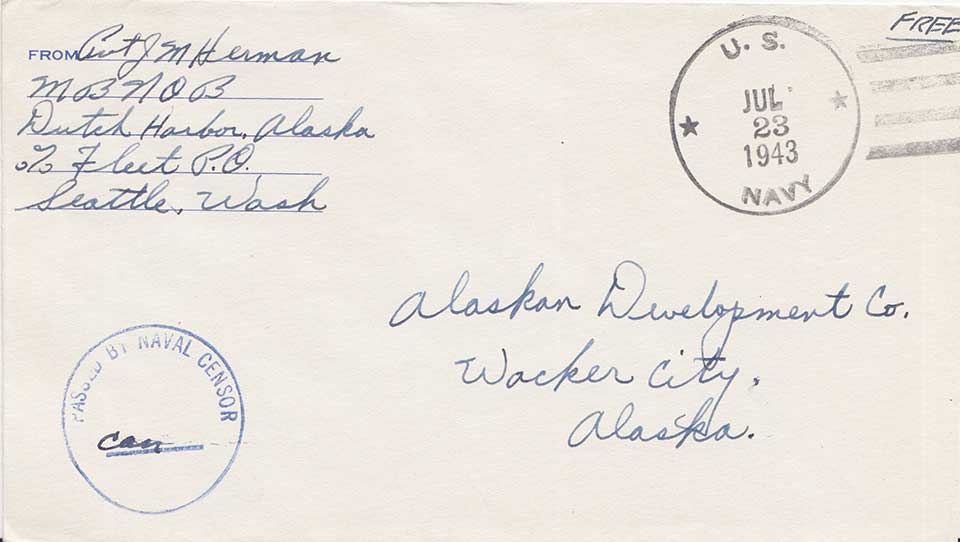 FROM Pvt J M Herman
M B N O B
Dutch Harbor, Alaska
c/o Fleet P.O.
Seattle, Wash
FREE
U. S.
JUL
23
1943
NAVY
Alaskan Development Co.
Wacker City,
Alaska.
PASSED BY NAVAL CENSOR